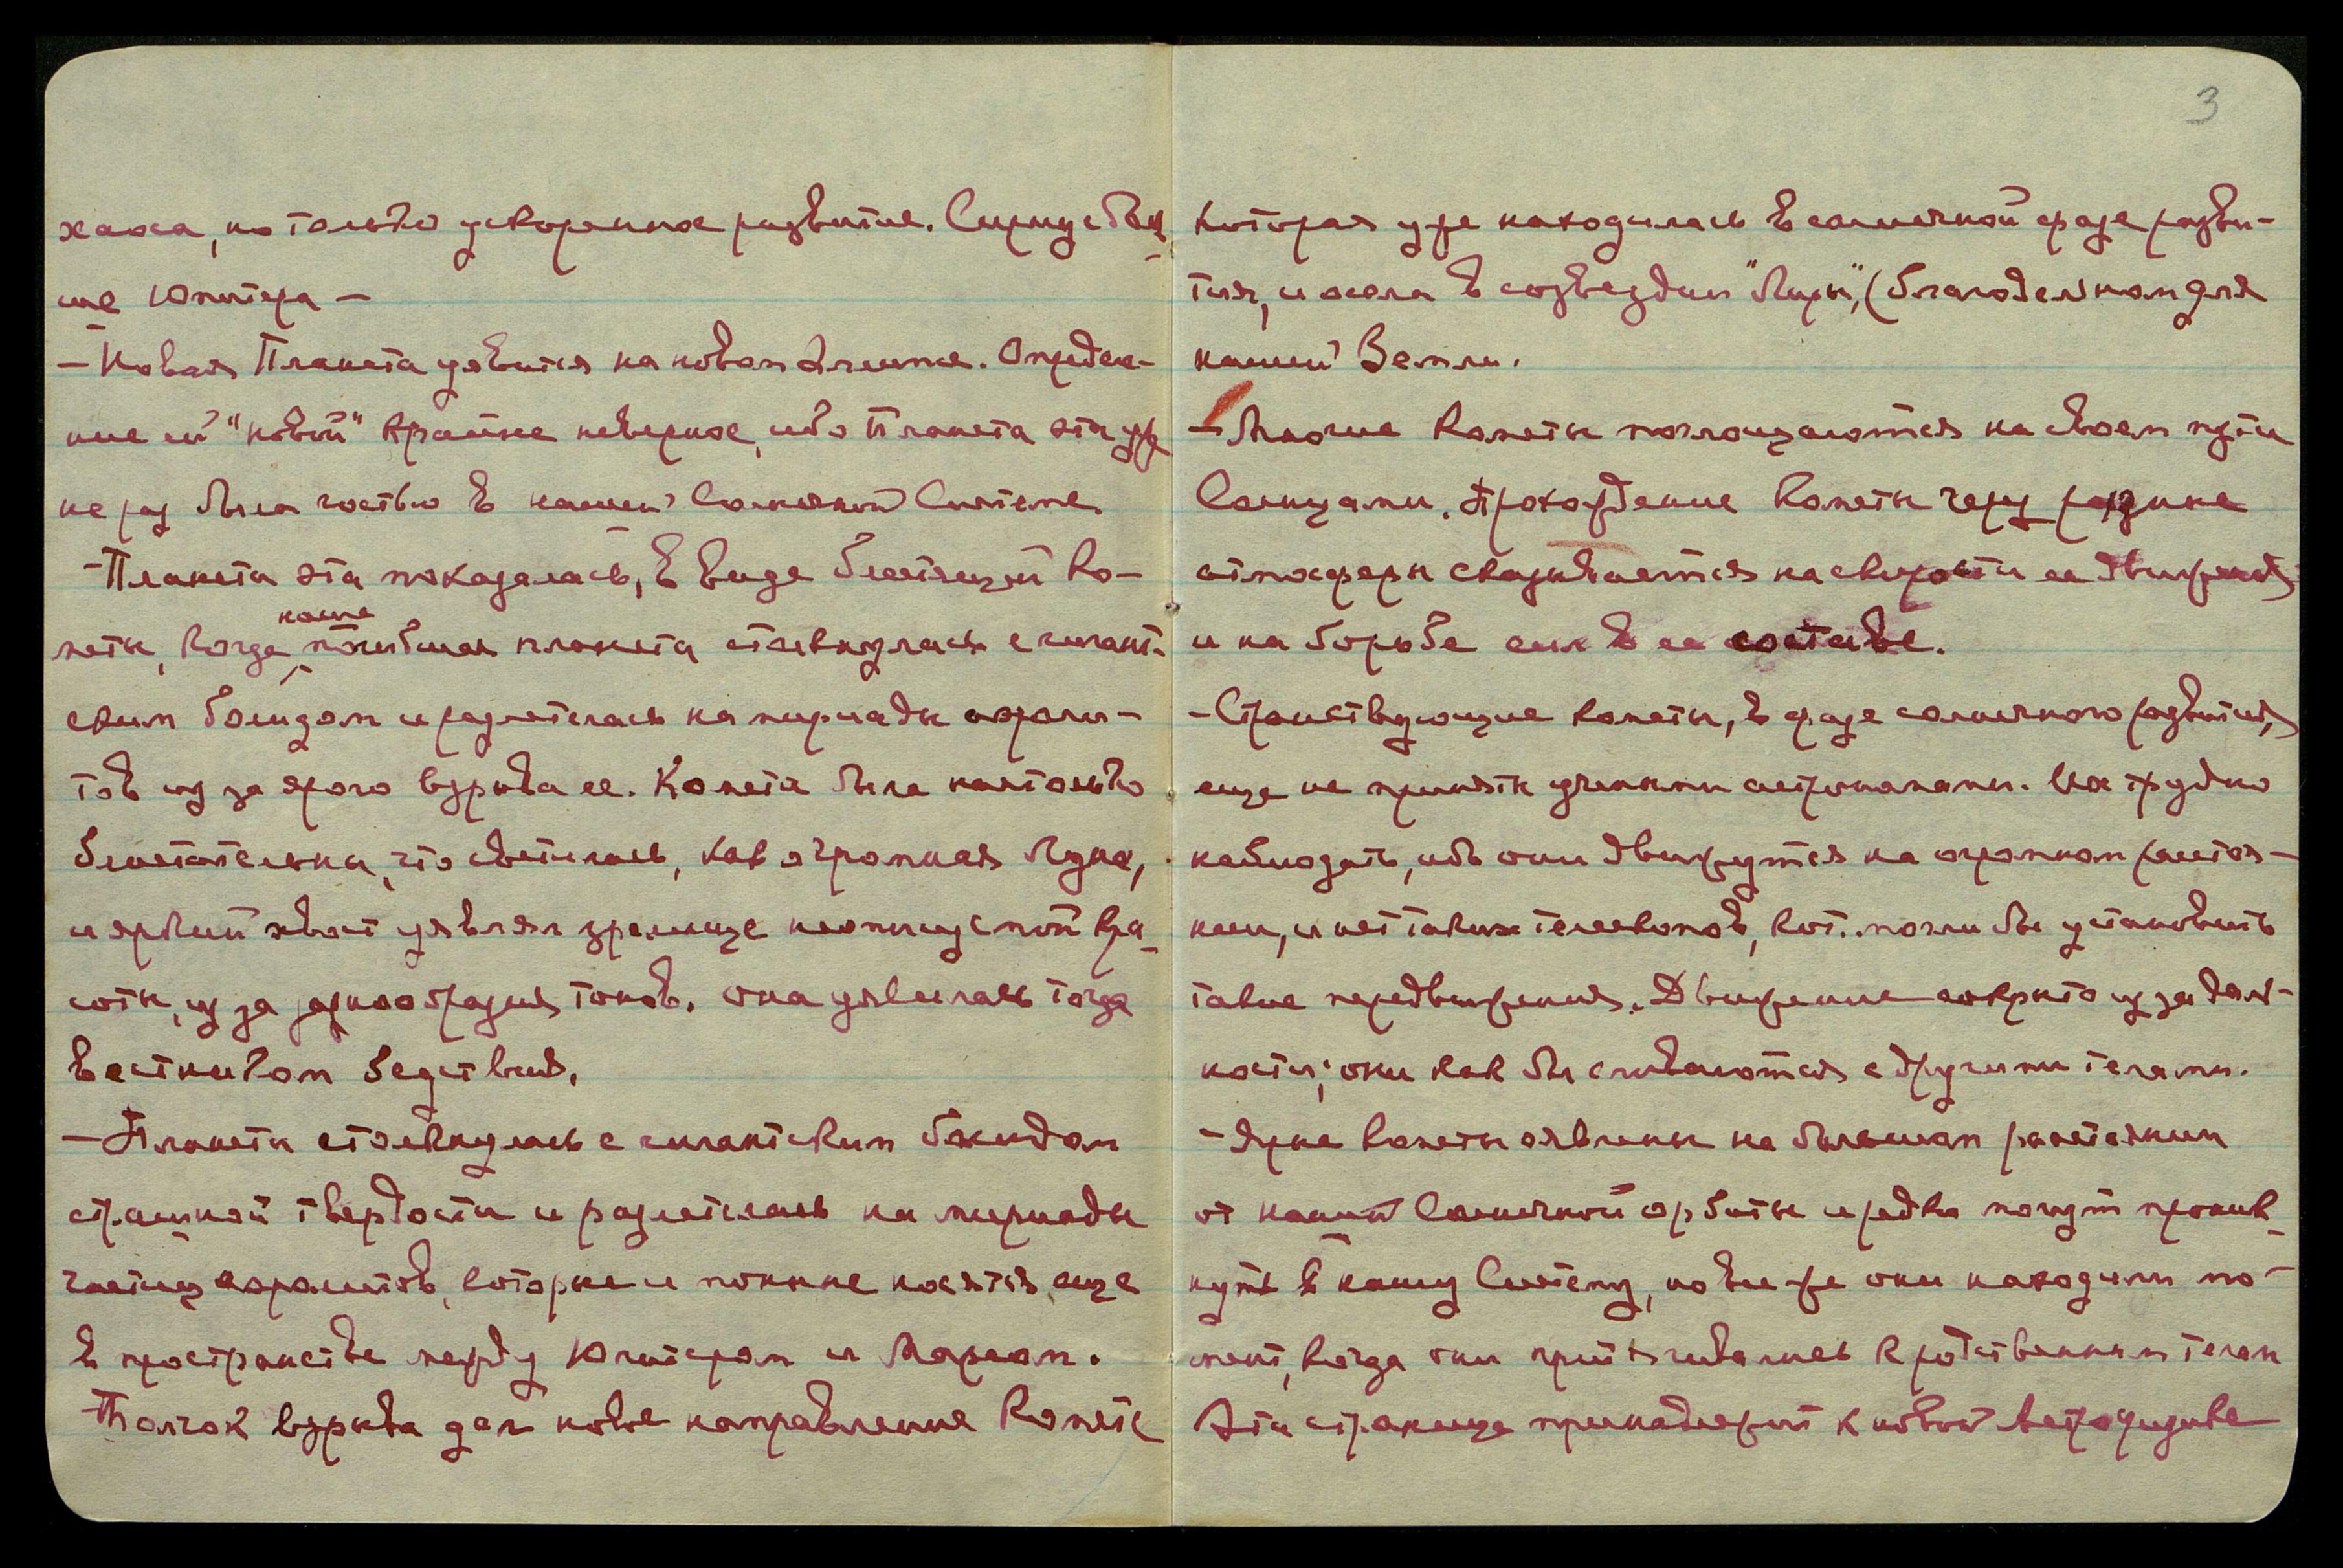 хаоса, но только ускоренное развитие. Сириус ближ
ше Юпитера —
— Новая Планета увится на новом Алтае. Определе-
ние ей "новой" крайне неверное, ибо Планета эта уж
не раз была гостью в нашей Солнечной Системе.
— Планета эта показалась, в виде блестящей Ко-
меты, когда наша погибшая планета столкнулась с гигант-
ским болидом и разлетелась на мириады аэроли-
тов из за ярого взрыва ее. Комета была настолько
блистательна, что светилась, как огромная Луна,
и яркий хвост уявлял зрелище неописуемой кра-
соты, из за разнообразия токов. Она уявилась тогда
вестником бедствия.
— Планета столкнулась с гигантским болидом
страшной твердости и разлетелась на мириады
частиц аэролитов, которые и поныне носятся еще
в пространстве между Юпитером и Марсом.
Толчок взрыва дал новое направление Комете
3
которая уже находилась в солнечной фазе разви-
тия, и осела в созвездии "Лиры",
нашей Земли.
— Многие Кометы поглощаются на своем пути
Солнцами. Прохождение Кометы через разные
атмосферы сказывается на скорости ее движения
и на борьбе сил в ее составе.
— Странствующие кометы, в фазе солнечного развития,
еще не приняты учеными астрономами. Их трудно
наблюдать, ибо они движутся на огромном расстоя-
нии, и нет таких телескопов, кот. могли бы установить
такие передвижения. Движение сокрыто из за даль-
ности; они как бы сливаются с другими телами.
— Ярые Кометы оявлены на большом расстоянии
от нашей Солнечной орбиты и редко могут проник-
нуть в нашу Систему, но все же они находили мо-
мент, когда они притягивались к родственным телам
Эта страница принадлежит к новой Астрофизике